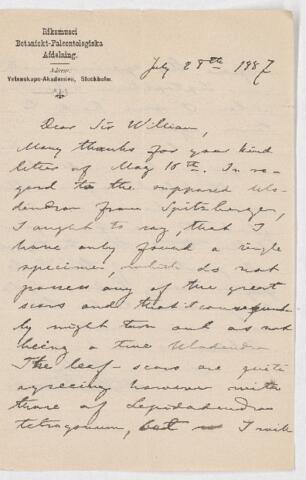 Riksmusei
Botaniskt-Paleontologiska
Afdelning.
Adress:
Vetenskaps-Akademien, Stockholm.
July 28th 1887
Dear Sir William,
Many thanks for your kind
letter of May 10th. In re-
gard to the supposed Ulo-
dendron from Spitzbergen,
I ought to say, that I
have only found a single
specimen, which do not
possess any of the great
scars and that it consequent-
ly might turn out as not
being a true Ulodendron
The leaf-scars are quite
agreeing however with
those of Lepidodendron
tetragonum, but I